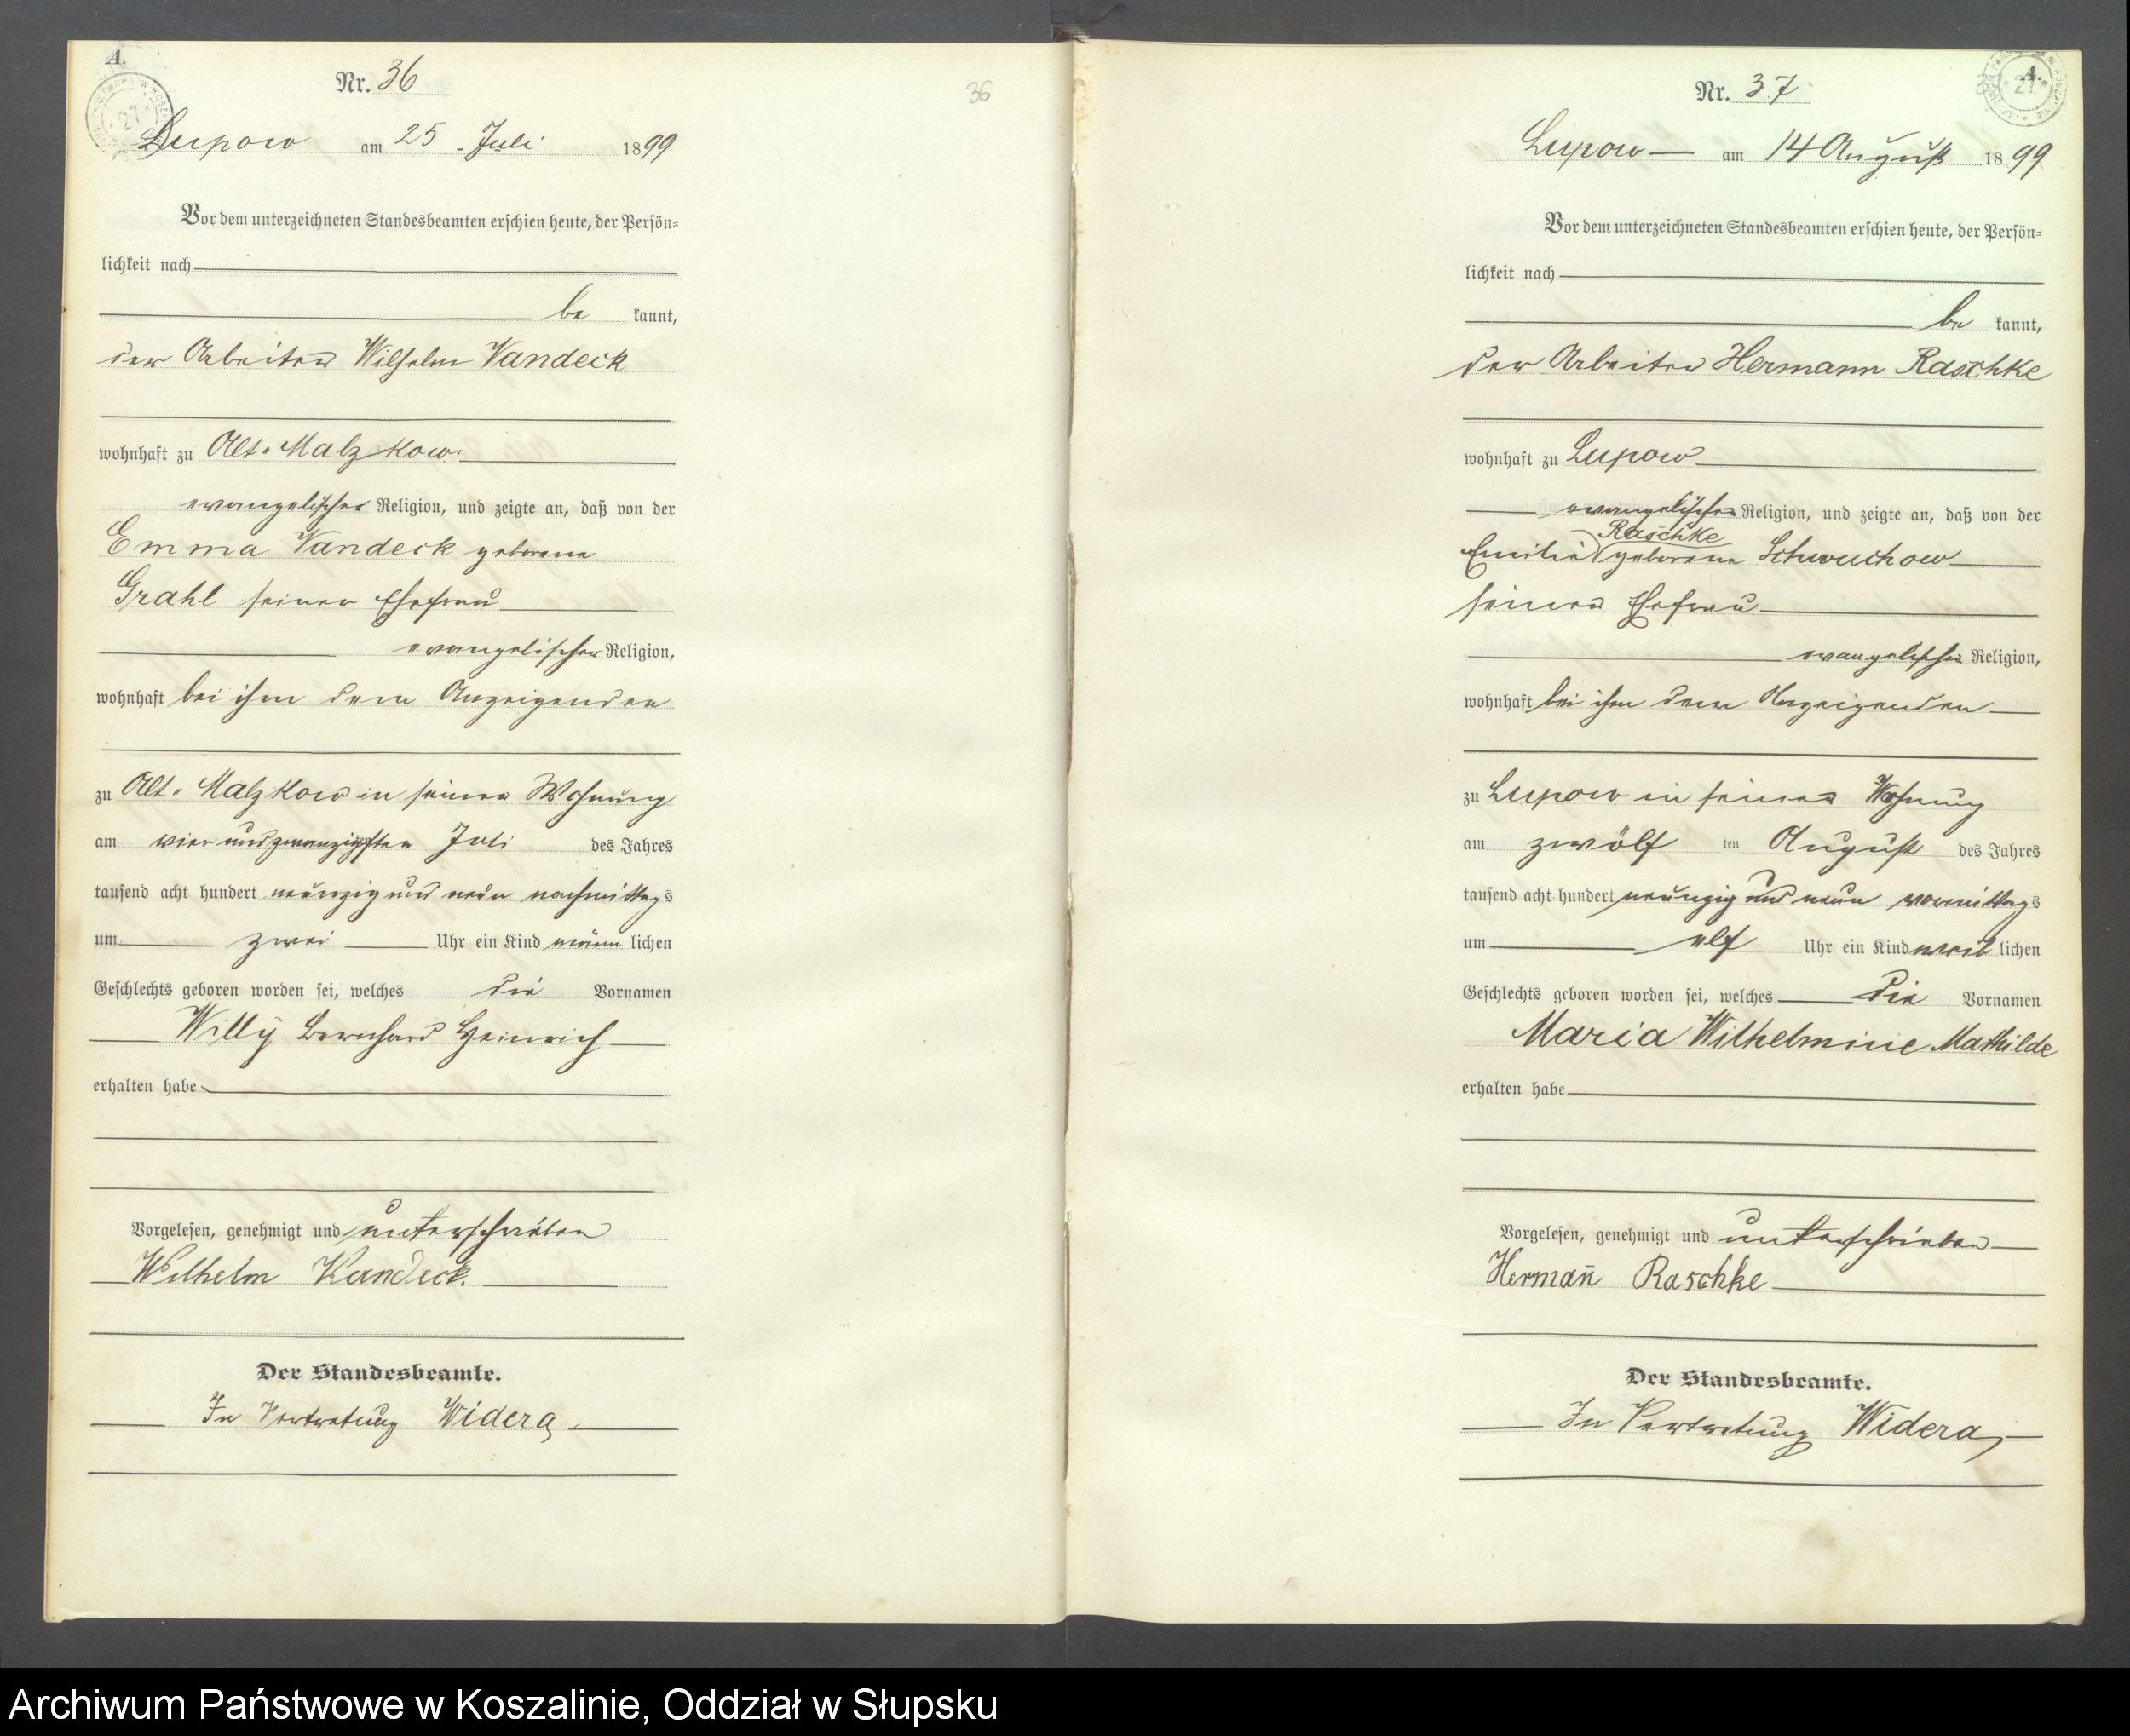 A.
Nr. 36
Lupow am 25. Juli 1899
Vor dem unterzeichneten Standesbeamten erschien heute, der Persön=
lichkeit nach
be kannt,
der Arbeiter Wilhelm Vandeck
wohnhaft zu Alt-Malzkow.
evangelischer Religion, und zeigte an, daß von der
Emma Vandeck geborene
Grahl seiner Ehefrau
evangelischer Religion,
wohnhaft bei ihm dem Anzeigenden
zu Alt-Malzkow in seiner Wohnung
am vierundzwanzigsten Juli des Jahres
tausend acht hundert neunzig und neun nachmittags
um zwei Uhr ein Kind männlichen
Geschlechts geboren worden sei, welches die Vornamen
Willy Bernhard Heinrich
erhalten habe
Vorgelesen, genehmigt und unterschrieben
Wilhelm Vandeck.
Der Standesbeamte.
In Vertretung Widera
36
A.
27
Nr. 37
Lupow am 14 August 1899
Vor dem unterzeichneten Standesbeamten erschien heute, der Persön=
lichkeit nach
be kannt,
der Arbeiter Hermann Raschke
wohnhaft zu Lupow
evangelischer Religion, und zeigte an, daß von der
Raschke
Emilie geborene Schwuchow
seiner Ehefrau
evangelischer Religion,
wohnhaft bei ihm dem Anzeigenden
zu Lupow in seiner Wohnung
am zwölf ten August des Jahres
tausend acht hundert neunzig und neun vormittags
um elf Uhr ein Kind weiblichen
Geschlechts geboren worden sei, welches die Vornamen
Maria Wilhelmine Mathilde
erhalten habe
Vorgelesen, genehmigt und unterschrieben
Hermañ Raschke
Der Standesbeamte.
In Vertretung Widera
Archiwum Państwowe w Koszalinie, Oddział w Słupsku